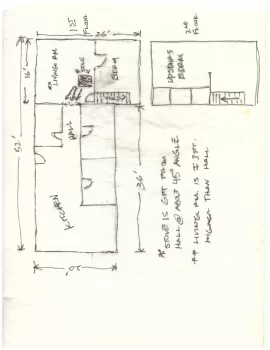 1ST
FLOOR
26'
16'
** LIVING RM.
STOVE
BEDRM
52'
HALL
KITCHEN
36'
20'
2ND
FLOOR
UPSTAIRS
BEDRM
* STOVE IS 6FT FROM
HALL @ ABOUT 45° ANGLE.
** LIVING RM. IS 3FT.
HIGHER THAN HALL